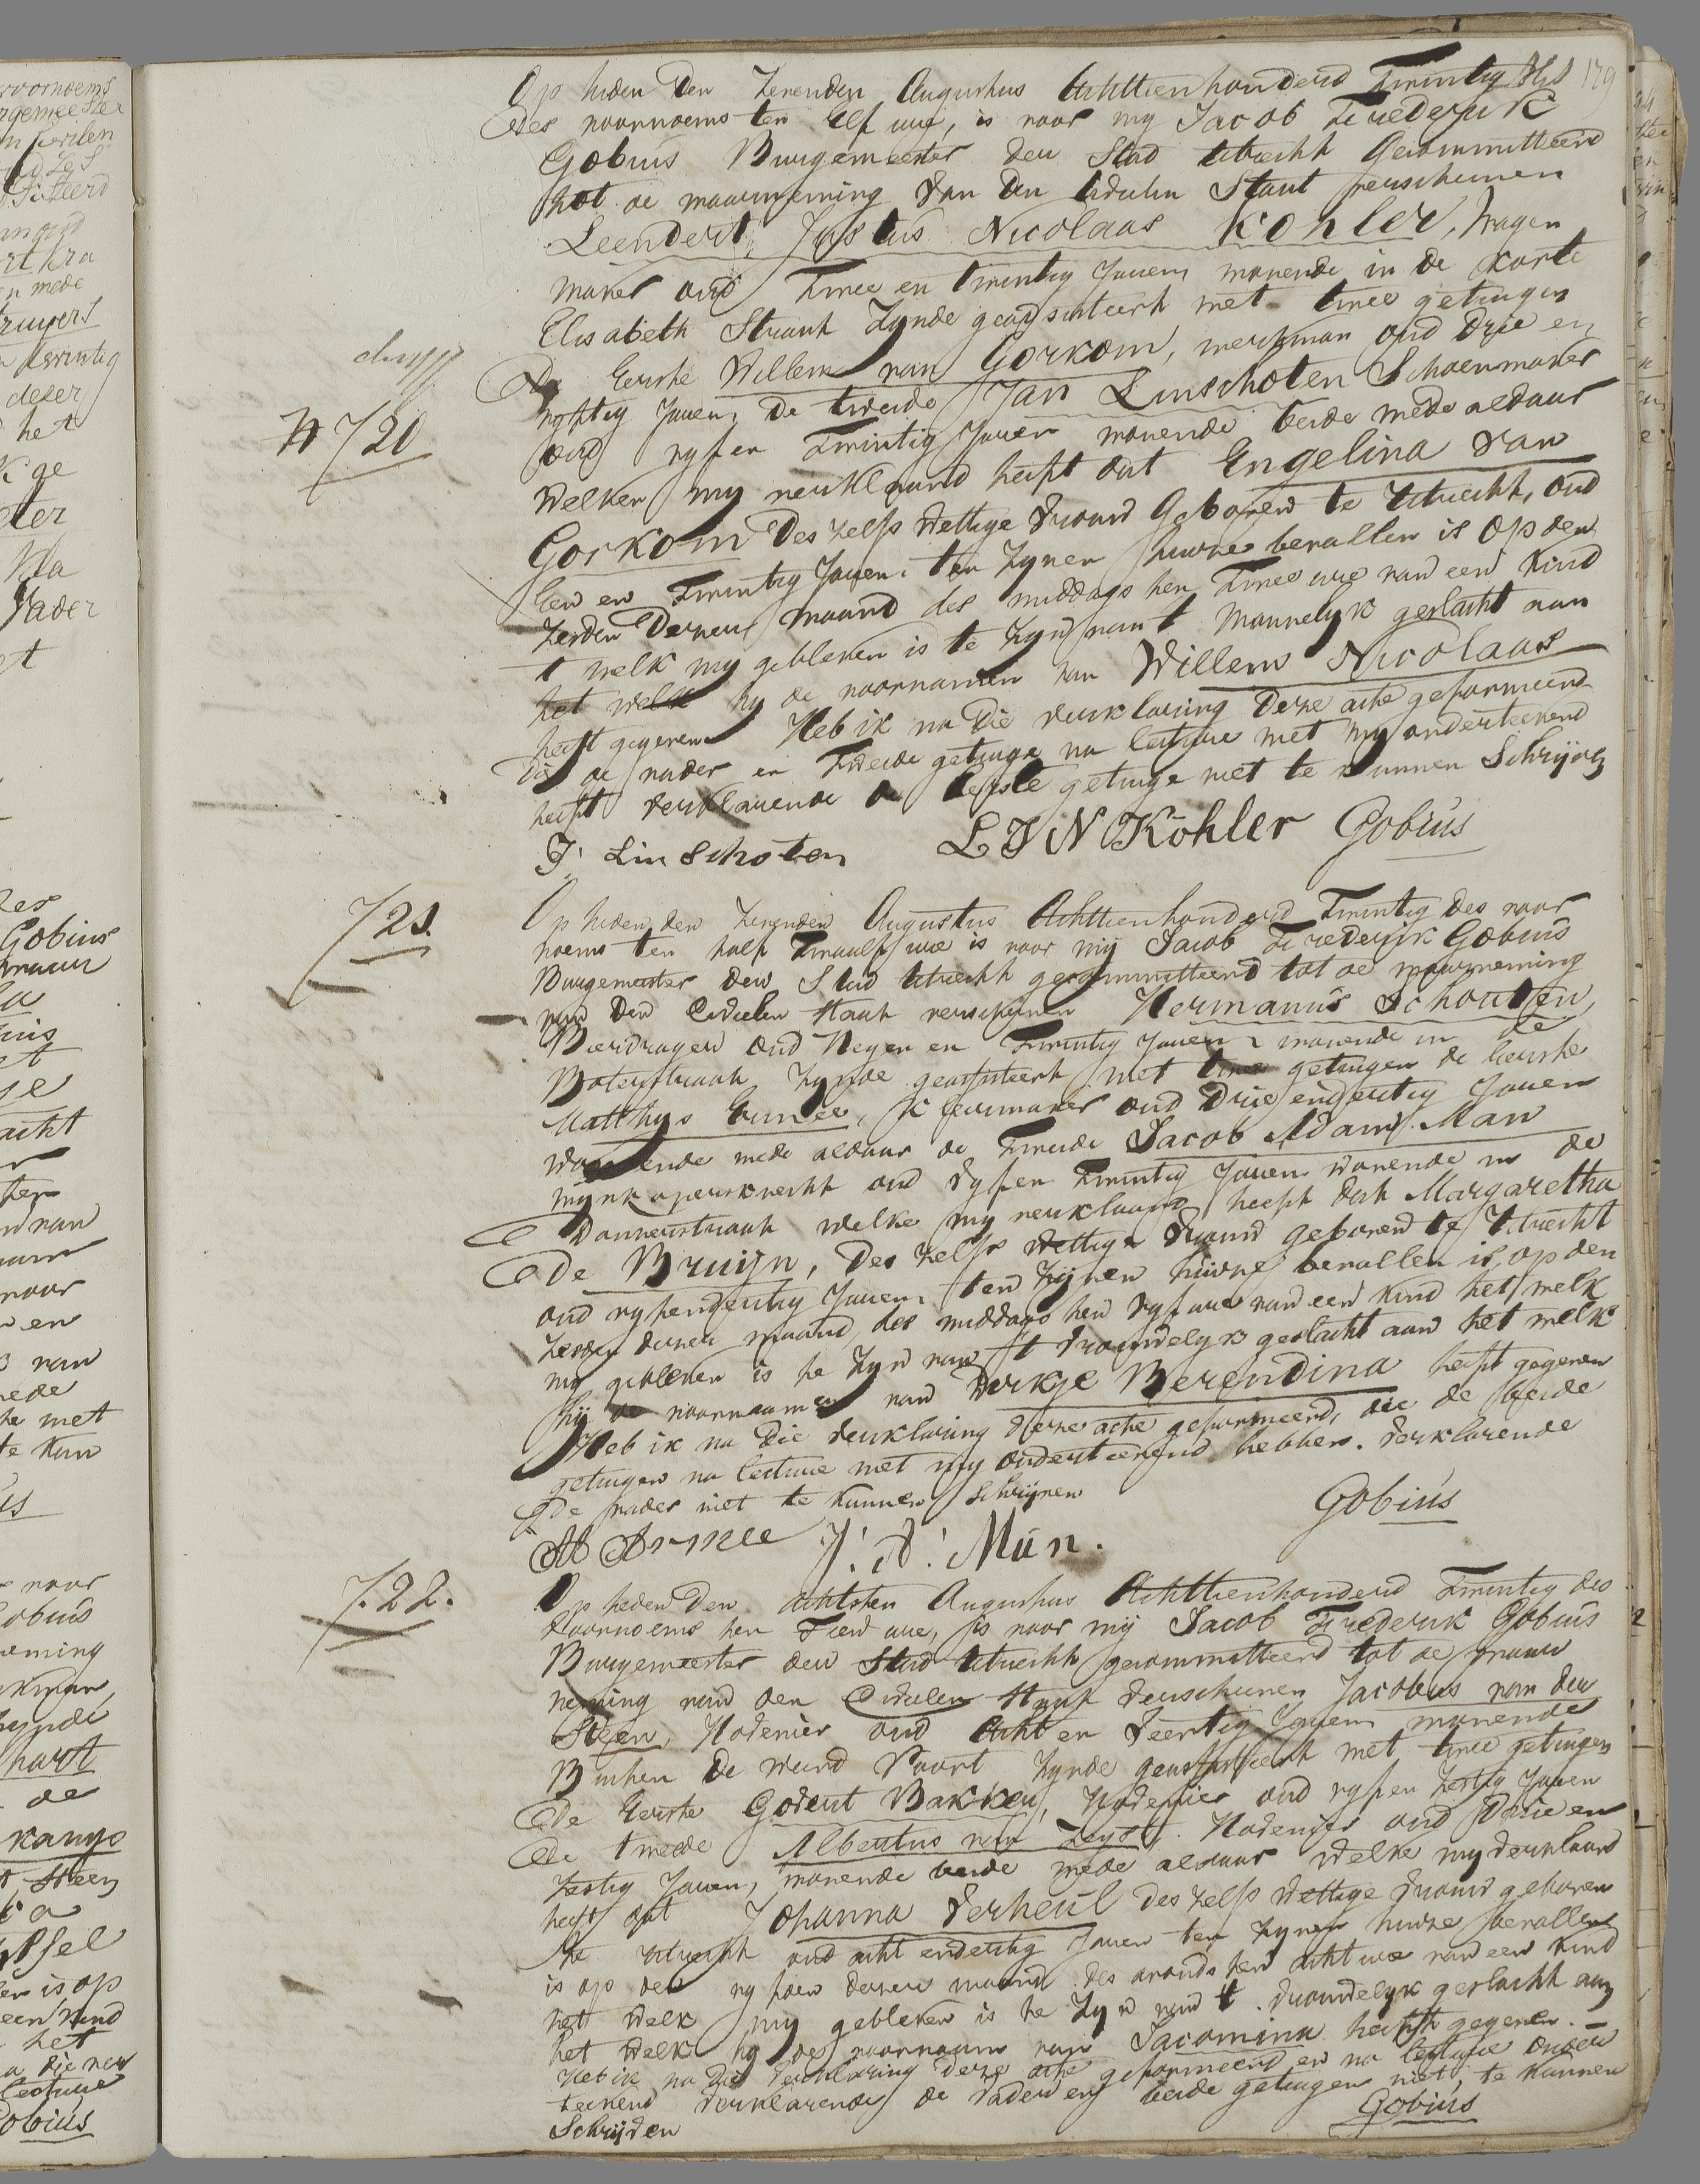 179
Op heden den Zevenden Augustus Achttienhonderd Twintig des
des voornoems ten Elf ure, is voor my Jacob Frederik
Gobius Burgemeester der Stad Utrecht Gecommitteerd
tot de waarneming van den Civielen Staat verschenen
Leendert Justus Nicolaas Kohler, Wagen
maker oud Twee en twintig Jaaren wonende in de Korte
Elisabeth Straat Zynde geadsisteert met twee getuigen
De Eerste Willem van Gorkom, werkman oud drie en
vyftig Jaaren, De tweede Jan Linschoten Schoenmaker
oud vyf en Twintig Jaaren wonende beide mede aldaar
N 720
Welken my verklaard heeft dat Engelina van
Gorkom Des zelfs Wettige Vrouw Geboren te Utrecht, oud
Een en Twintig Jaaren. ten Zynen huize bevallen is op den
Zesden Dezer maand des middags ten Twee ure van een Kind
t welk my gebleken is te Zyn van t Mannelyk geslacht aan
het welk hy de voornamen van Willem Nicolaas
heeft gegeven Heb ik na Die verklaring Deze acte geformeerd
Die de vader en Tweede getuige na lecture met my onderteekend
heeft verklarende de Eerste getuige niet te kunnen Schrijven
J. Linschoten L J N Köhler Gobius
721.
Op heden den Zevenden Augustus Achttienhonderd Twintig des voor
noems ten half Twaalf ure is voor mij Jacob Frederijk Gobius
Burgemeester der Stad Utrecht gecommitteerd tot de waarneming
van den Civielen Staat verschenen Hermanus Schouten,
Bierdrager oud Negen en Twintig Jaaren wonende in de
Boterstraat Zynde geassisteert met twee getuigen de Eerste
Matthys Ermee, Kleermaker oud Drie endertig Jaaren
Wonende mede aldaar de Tweede Jacob Adam Man
wynkopersknecht oud Vyf en Twintig Jaaren wonende in de
Donkerstraat Welke my verklaard heeft dat Margaretha
De Bruijn, Des zelfs Wettige Vrouw geboren te Utrecht
oud vyf endertig Jaaren, ten Zijnen huize bevallen is, op den
Zesden dezer maand, des middags ten Vyf ure van een Kind het welk
my gebleken is te Zyn van t Vrouwelyk geslacht aan het welk
hij de voornaamen van Dirkje Berendina heeft gegeven
Heb ik na Die verklaring deze acte geformeerd, die de beide
getuigen na lecture met my onderteekend hebben. Verklarende
De vader niet te kunnen Schrijven
Gobius
M Ermee J: A: Man.
722.
Op heden Den Achtsten Augustus Achttienhonderd Twintig des
Voornoems ten Tien ure, is voor mij Jacob Frederik Gobius
Burgemeester der Stad Utrecht gecommitteerd tot de waar
neming van den Civielen Staat Verschenen Jacobus van der
Steen, Hovenier oud Acht en Veertig Jaaren wonende
Buiten De Weerd Poort Zynde geassisteert met twee getuigen
De Eerste Godert Bakker, Hovenier oud vyf en Zestig Jaaren
De tweede Albertus van Zeyst, Hovenier oud Drie en
Zestig Jaaren, wonende beide mede aldaar Welke my Verklaard
heeft dat Johanna Verheul des zelfs Wettige Vrouw geboren
te Utrecht oud acht endertig Jaaren ten Zynen huize bevallen
is op den vyfden dezer maand. Des avonds ten acht ure van een Kind
het Welk my gebleken is te Zyn van t. Vrouwelyk geslacht aan
het Welk hy de voornaam van Jacomina heeft gegeven. —
Heb ik na Die Verklaring Deze acte geformeerd en na lecture onder
teekend Verklarende de Vader en beide getuigen niet te kunnen
Schrijven
Gobius